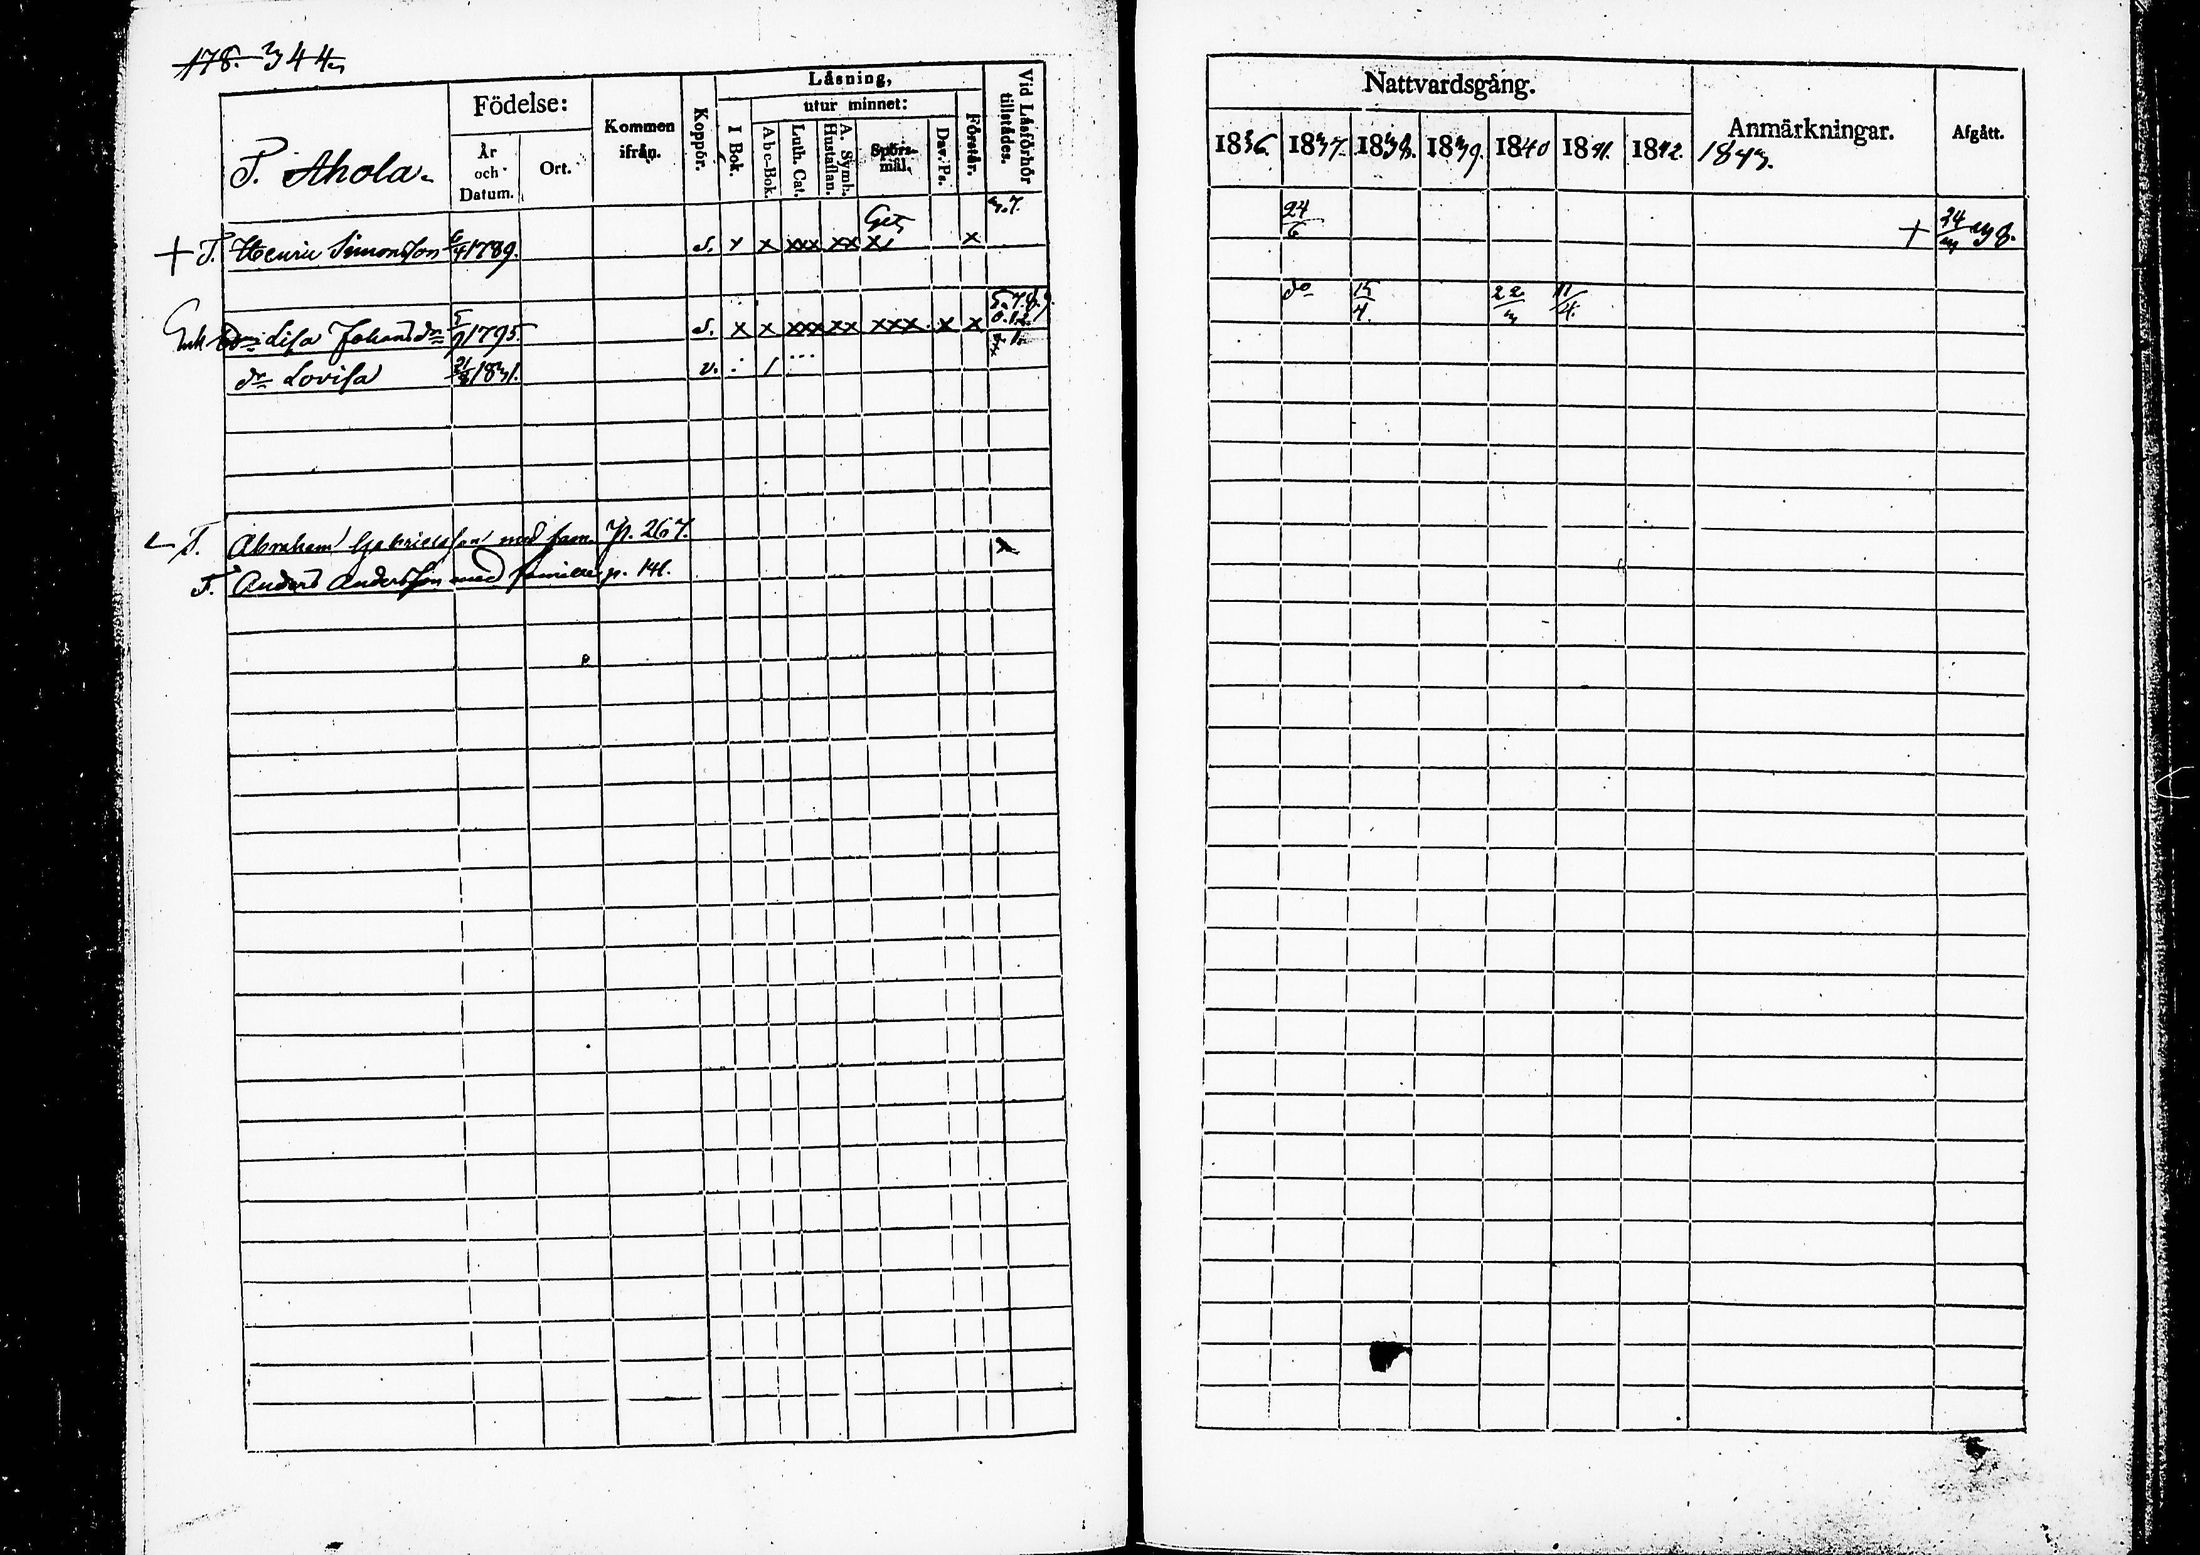 178. 344
Läsning,
Födelse:
Kommen ifrån.
Koppor.
utur minnet:
I Bok.
Förstår.
Vid Läsförhör tillstädes.
P. Ahola.
År och Datum.
Ort.
Abc-Bok.
Luth. Cat.
A. Symb. Hustaflan.
Spörsmål.
Dav. Ps.
3.7.
+ T. Henric Simonsson 6/4 1789. s. x x xxx xx xx x
5.7.8.9.
Enk Lisa Johansdr 5/9 1795. s. x x xxx xx xxx x x
dr Lovisa 21/8 1831. v.
T. Abraham Gabrielsson med fam. p. 267. x
T. Anders Andersson med familie p. 141.
Nattvardsgång.
Anmärkningar.
Afgått.
1836. 1837. 1838. 1839. 1840 1841. 1842. 1843.
24/6 + 24/3 38.
do 15/4. 22/3 11/4.